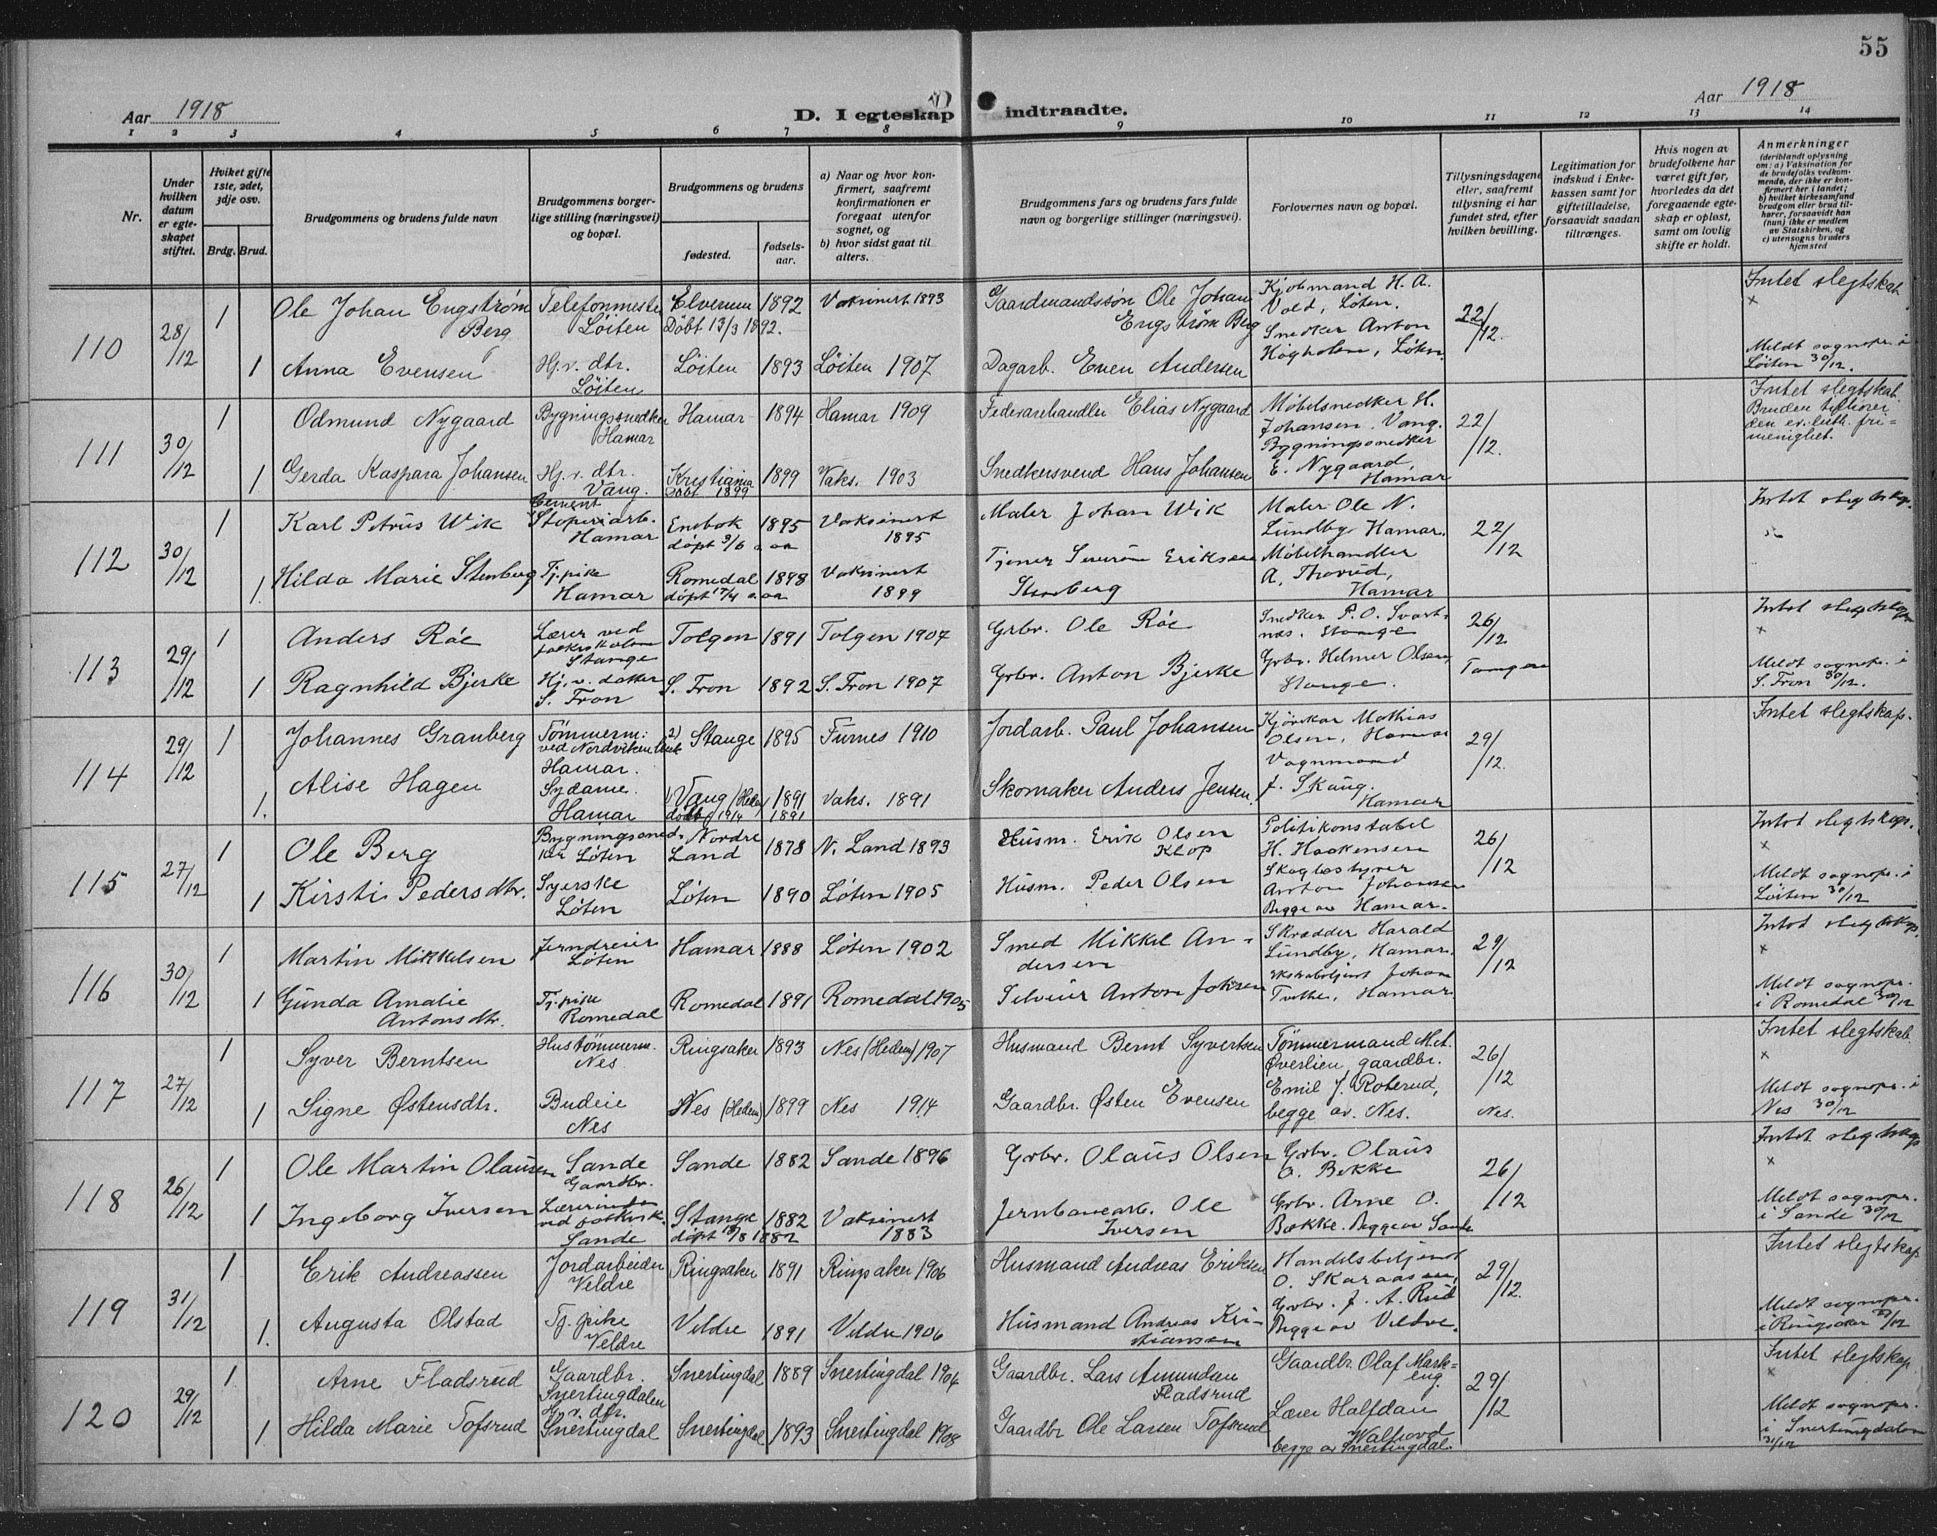 55
Aar 1918
D. I egteskap indtraadte.
Aar 1918
1 2 3 4 5 6 7 8 9 10 11 12 13 14
Nr.
Under hvilken datum er egteskapet stiftet.
Hvilket gifte 1ste, 2det, 3dje osv.
Brdg. Brud.
Brudgommens og brudens fulde navn
Brudgommens borgerlige stilling (næringsvei) og bopæl.
Brudgommens og brudens
fødested. fødselsaar.
a) Naar og hvor konfirmert, saafremt konfirmationen er foregaat utenfor sognet, og
b) hvor sidst gaat til alters.
Brudgommens fars og brudens fars fulde navn og borgerlige stillinger (næringsvei).
Forlovernes navn og bopæl.
Tillysningsdagene eller, saafremt tillysning ei har fundet sted, efter hvilken bevilling.
Legitimation for indskud i Enkekassen samt for giftetilladelse, forsaavidt saadan tiltrænges.
Hvis nogen av brudefolkene har været gift før, hvorledes da det foregaaende egteskap er opløst, samt om lovlig skifte er holdt.
Anmerkninger
(deriblandt oplysning om: a) Vaksination for de brudefolks vedkommende, der ikke er konfirmert her i landet; b) hvilket kirkesamfund brudgom eller brud tilhører, forsaavidt han (hun) ikke er medlem av Statskirken, og c) utensogns bruders hjemsted
110 28/12 1 Ole Johan Engstrøm Berg Telefonmester Løiten Elverum Døbt 13/3 1892. 1892 Vaksinert 1893 Gaardmandssøn Ole Johan Engstrøm Berg Kjøbmand H. A. Vold, Løten. 22/12. Intet slegtskab
1 Anna Evensen Hj. v. dtr. Løiten Løiten 1893 Løiten 1907 Dagarb. Even Andersen Snedker Anton Høgholen, Løten Meldt sognepr. i Løiten 30/12.
111 30/12 1 Odmund Nygaard Bygningssnedker Hamar Hamar 1894 Hamar 1909 Fedevarehandler Elias Nygaard Møbelsnedker H. Johansen, Vang. 22/12. Intet slegtskab. Bruden tilhører den ev. luth. frimenighet.
1 Gerda Kaspara Johansen Hj. v. dtr. Vang. Kristiania døbt 1899 1899 Vaks. 1903 Snedkersvend Hans Johansen Bygningssnedker E. Nygaard, Hamar
112 30/12 1 Karl Petrus Wik Cement Støperiarb. Hamar Enebok døpt 9/6 s. aa 1895 Vaksinert 1895 Maler Johan Wik Maler Ole N. Lundby Hamar. 22/12 Intet slegtskap.
1. Hilda Marie Stenberg Tj. pike Hamar Romedal døpt 17/4 s. aa 1898 Vaksinert 1899 Tjener Severin Eriksen Stenberg Møbelhandler A. Thorud, Hamar
113 29/12 1 Anders Røe Lærer ved folkeskolen Stange Tolgen 1891 Tolgen 1907 Grbr. Ole Røe Snedker P. O. Svartnes. Stange 26/12 Tangen Intet slegtskap
1 Ragnhild Bjerke Hj. v. datter S. Fron S. Fron 1892 S. Fron 1907 Grbr. Anton Bjerke Grbr. Helmer Olsen, Stange. Meldt sognepr. i S. Fron 30/12.
114 29/12 1 Johannes Granberg Tømmerm: ved Nordviken Hamar. 2) Stange 1895 Furnes 1910 Jordarb. Paul Johansen Kjørekar Mathias Olsen, Hamar 29/12. Intet slegtskap.
1. Alise Hagen Sydame Hamar 1) Vang (Hedm) døbt 19/4 1891 1891 Vaks. 1891 Skomaker Anders Jensen. Vognmand J. Skaug. Hamar
115 27/12 1 Ole Berg Bygningssnedker Løten Nordre Land 1878 N. Land 1893 Husm. Erik Olsen Klop Politikonstabel H. Haakensen 26/12 Intet slegtskap.
1 Kirsti Pedersdtr. Syerske Løten Løten 1890 Løten 1905 Husm. Peder Olsen Skogbestyrer Anton Johansen Begge av Hamar. Meldt sognepr. i Løiten 30/12
116 30/12 1 Martin Mikkelsen Jerndreier Løten Hamar 1888 Løten 1902 Smed Mikkel Andersen Skrædder Harald Lundby, Hamar. 29/12 Intet slegtskap.
1 Gunda Amalie Antonsdtr. Tj. pike Romedal Romedal 1891 Romedal 1905 Selveier Anton Johsen Ekstrabetjent Johan Tvethe, Hamar. Meldt sognepr. i Romedal 30/12
117 27/12 1 Syver Berntsen Hustømmerm. Nes Ringsaker 1893 Nes (Hedm) 1907 Husmand Bernt Syvertsen Tømmermand M. A. Øverlien gaardbr. 26/12 Nes. Intet slegtskab.
1 Signe Østensdtr. Budeie Nes Nes (Hedm) 1899 Nes 1914 Gaardbr. Østen Evensen Emil J. Roterud, begge av Nes. Meldt sognepr. i Nes 30/12
118 26/12 1 Ole Martin Olausen Sande Gaardbr. Sande 1882 Sande 1896 Grbr. Olaus Olsen Grbr. Olaus O. Bekke 26/12 Intet slegtskap
1 Ingeborg Iversen Lærerinde ved folkesk. Sande Stange døpt 13/8 1882 1882 Vaksinert 1883 Jernbanearb. Ole Iversen Grbr. Arne O. Bække. Begge av Sande Meldt sognepr. i Sande 30/12
119 31/12 1 Erik Andreassen Jordarbeider Veldre Ringsaker 1891 Ringsaker 1906 Husmand Andreas Eriksen Handelsbetjent O. Skaraasen, 29/12. Intet slegtskap
1. Augusta Olstad Tj. pike Veldre Veldre 1891 Veldre 1906 Husmand Andreas Kristiansen Grbr. J. A. Rud Begge av Veldre. Meldt sognepr. i Ringsaker
120 29/12 1 Arne Fladsrud Gaardbr. Snertingdalen Snertingdal 1889 Snertingdal 1904 Gaardbr. Lars Amundsen Fladsrud Gaardbr. Olaf Markeng. 29/12 Intet slegtskap
1. Hilda Marie Tofsrud Hj. v. dtr. Snertingdal Snertingdal 1893 Snertingdal 1908 Gaardbr Ole Larsen Tofsrud Lærer Halfdan Walhovd begge av Snertingdal. Meldt sognepr. i Snertingdalen 31/12